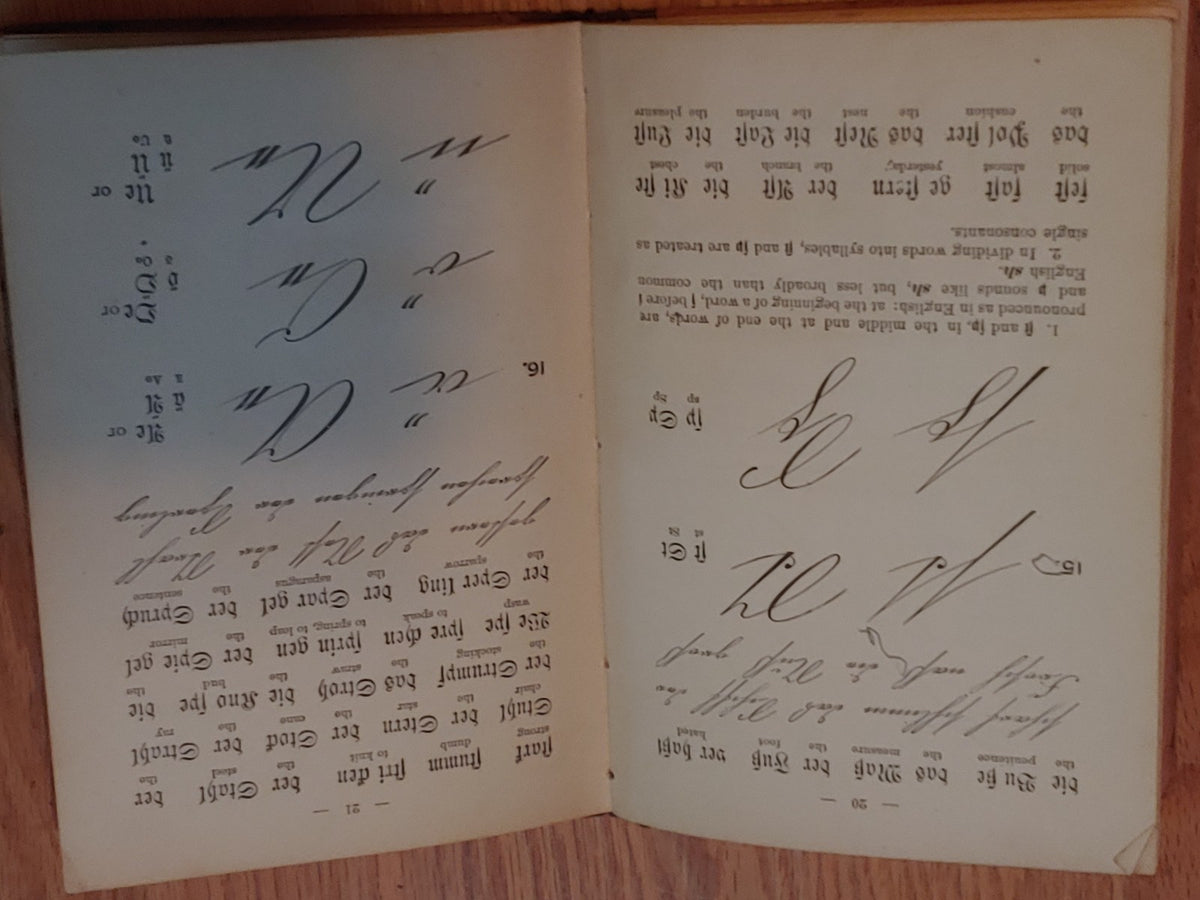 — 20 —
die Bu ße das Maß der Fuß ver haßt
the penitence the measure the foot hated
scharf schlimm das Schiff der
Frosch naß die Nuß groß
15. ſt St ſt St
st St
ſp Sp ſp Sp
sp Sp
1. ſt and ſp, in the middle and at the end of words, are
pronounced as in English: at the beginning of a word, ſ before t
and p sounds like sh, but less broadly than the common
English sh.
2. In dividing words into syllables, ſt and ſp are treated as
single consonants.
feſt faſt ge ſtern der Aſt die Ki ſte
solid almost yesterday the branch the chest
das Pol ſter das Neſt die Laſt die Luſt
the cushion the nest the burden the pleasure
— 21 —
ſtark ſtumm ſtri cken der Stahl der
strong dumb to knit the steel the
Stuhl der Stern der Stock der Strahl
chair the star the cane the ray
der Strumpf das Stroh die Kno ſpe die
the stocking the straw the bud the
We ſpe ſpre chen ſprin gen der Spie gel
wasp to speak to spring, to leap the mirror
der Sper ling der Spar gel der Spruch
the sparrow the asparagus the sentence
gestern das Nest der
sprechen springen der Sperling
16. ä Ae Ae or
ä Ä
a Ao
ö Oe Oe or
ö Ö
o Oo
ü Ue Ue or
ü Ü
u Uo